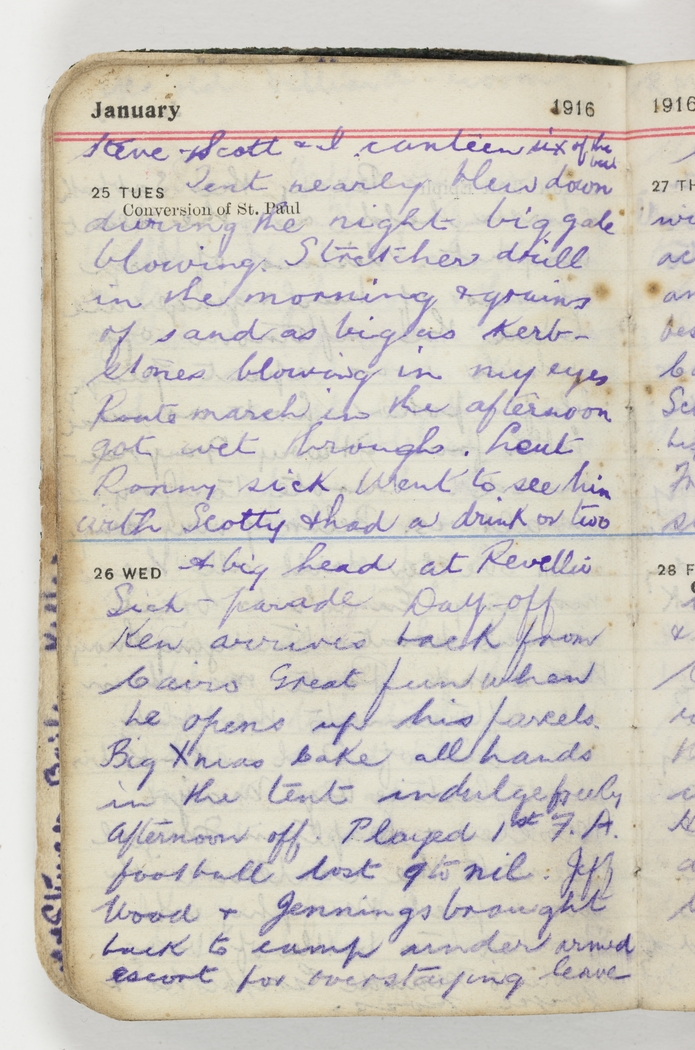 January 1916 1916
Steve Scott & I canteen six of the best
25 TUES Tent nearly blew down 27 TH
Conversion of St. Paul
during the night big gale
blowing. Stretcher drill
in the morning & grains
of sand as big as kerb-
stones blowing in my eyes
Route march in the afternoon
got wet through. Lieut
Ronny sick Went to see him
with Scotty & had a drink or two
26 WED A big head at Revellie 28 F
Sick-parade Day-off
Ken arrives back from
Cairo Great fun when
he opens up his parcels.
Big Xmas cake all hands
in the tent indulge freely
Afternoon off Played 1st F.A.
football lost 9 to nil. Jeff
Wood & Jennings brought
back to camp under armed
escort for overstaying leave